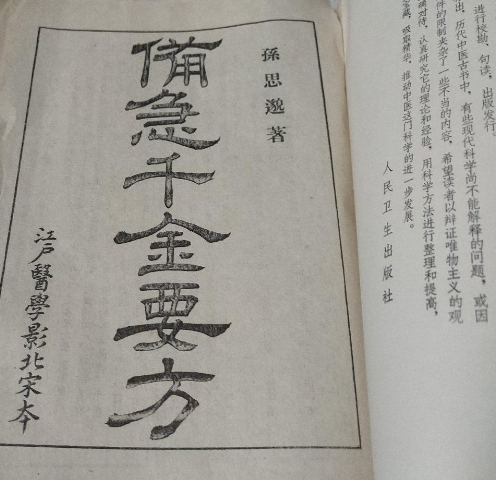 进行校勘、句读，出版发行
出，历代中医古书中，有些现代科学尚不能解释的问题，或因
件的限制夹杂了一些不当的内容，希望读者以辩证唯物主义的观
确对待，认真研究它的理论和经验，用科学方法进行整理和提高，
吸取精华，推动中医这门科学的进一步发展。
人民卫生出版社
孫思邈著
備急千金要方
江戸醫學影北宋本